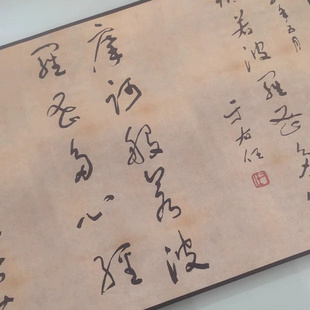 年五月
若波羅蜜多
于右任
摩訶般若波
羅蜜多心經